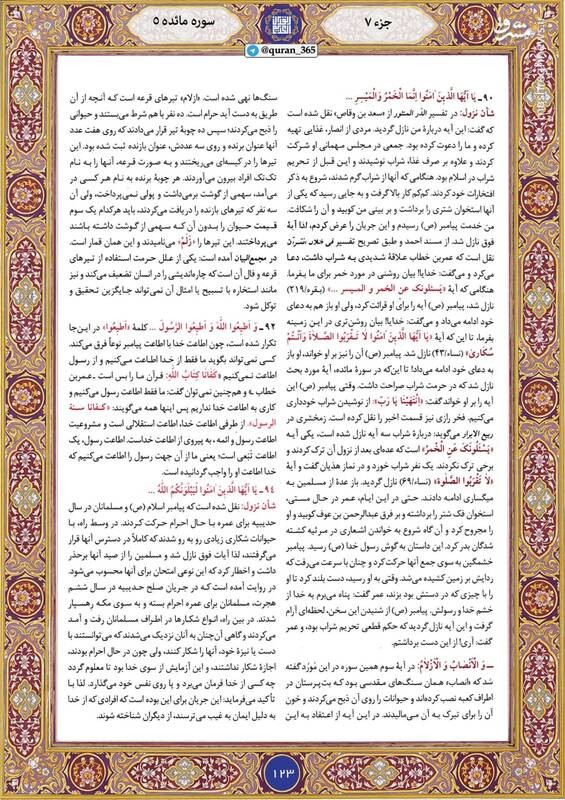 جزء ۷
سوره مائده ۵
@quran_365
۹۰ـ یَا أَیُّهَا الَّذِینَ آمَنُوا إِنَّمَا الْخَمْرُ وَالْمَیْسِرِ ...
شأن نزول: در تفسیر الدّر المنثور از سعد بن وقاص، نقل شده است
که گفت: این آیه دربارهٔ من نازل گردید. مردی از انصار، غذایی تهیه
کرده و ما را دعوت کرده بود. جمعی در مجلس مهمانی او شرکت
کردند و علاوه بر صرف غذا، شراب نوشیدند و این قبل از تحریم
شراب در اسلام بود. هنگامی که آنها از شراب گرم شدند، شروع به ذکر
افتخارات خود کردند. کم‌کم کار بالا گرفت و به جایی رسید که یکی از
آنها استخوان شتری را برداشت و بر بینی من کوبید و آن را شکافت.
من خدمت پیامبر (ص) رسیدم و این جریان را عرض کردم، لذا آیهٔ
فوق نازل شد. از مسند احمد و طبق تصریح تفسیر فی ظلال
نقل شده است که عمربن خطاب علاقهٔ شدیدی به شراب داشت، دعا
می‌کرد و می‌گفت: خدایا! بیان روشنی در مورد خمر برای ما بفرما.
هنگامی که آیهٔ «یَسئلونک عن الخمر و المیسر ...» (بقره/۲۱۹)
نازل شد، پیامبر (ص) آیه را برای او قرائت کرد، ولی او باز هم به دعای
خود ادامه می‌داد و می‌گفت: خدایا! بیان روشن‌تری در این زمینه
بفرما، تا این که آیهٔ «یَا أَیُّهَا الَّذِینَ آمَنُوا لَا تَقْرَبُوا الصَّلَاةَ وَأَنْتُمْ
سُکَارَىٰ» (نساء/۴۳) نازل شد. پیامبر (ص) آن را نیز بر او خواند، او باز
به دعای خود ادامه می‌داد! تا این‌که در سورهٔ مائده، آیهٔ مورد بحث
نازل شد که در حرمت شراب صراحت داشت. وقتی پیامبر (ص) این
آیه را بر او خواند گفت: «إِنْتَهَیْنَا یَا رَبّ»: از نوشیدن شراب خودداری
می‌کنیم. فخر رازی نیز قسمت اخیر را نقل کرده است. زمخشری در
ربیع الابرار می‌گوید: دربارهٔ شراب سه آیه نازل شده است، یکی آیهٔ
«یَسْئَلُونَکَ عَنِ الْخَمْرِ» است که عده‌ای بعد از نزول آن ترک کردند و
برخی ترک نکردند. یک نفر شراب خورد و در نماز هذیان گفت و آیهٔ
«لَا تَقْرَبُوا الصَّلٰوةَ» (نساء/۶۹) نازل گردید. باز عدهٔ از مسلمین به
میگساری ادامه دادند. حتی در این ایام، عمر در حال مستی،
استخوان فک شتر را برداشته و بر فرق عبدالرحمن بن عوف کوبید و او
را مجروح کرد و آن گاه شروع به خواندن اشعاری در مرثیه کشته
شدگان بدر کرد. این داستان به گوش رسول خدا (ص) رسید. پیامبر
خشمگین به سوی جمع آنها حرکت کرد و چنان با سرعت می‌رفت که
ردایش بر زمین کشیده می‌شد. وقتی به او رسید، دست بلند کرد تا او
را با چیزی که در دستش بود بزند، عمر گفت: پناه می‌برم به خدا از
خشم خدا و رسولش. پیامبر (ص) از شنیدن این سخن، لحظه‌ای آرام
گرفت و این آیه نازل گردید که حکم قطعی تحریم شراب بود، و عمر
گفت: آری! از این دست برداشتم.
ـ وَ الْأَنْصَابُ وَ الْأَزْلَامُ: در آیهٔ سوم همین سوره در این مَورُد گفته
شد که «انصاب» همان سنگ‌های مقدسی بود که بت‌پرستان در
اطراف کعبه نصب کرده‌اند و حیوانات را روی آن ذبح می‌کردند و خون
آن را برای تبرک به آن می‌مالیدند. در این آیه از اعتقاد به این
سنگ‌ها نهی شده است. «ازلام» تیرهای قرعه است که آنچه از آن
طریق به دست آید حرام است. ده نفر با هم شرط می‌بستند و حیوانی
را ذبح می‌کردند؛ سپس ده چوبهٔ تیر قرار می‌دادند که روی هفت عدد
آنها عنوان برنده و روی سه عددش، عنوان بازنده ثبت شده بود. این
تیرها را در کیسه‌ای می‌ریختند و به صورت قرعه، آنها را به نام
تک‌تک افراد بیرون می‌آوردند. هر چوبهٔ برنده به نام هر کسی در
می‌آمد، سهمی از گوشت برمی‌داشت و پولی نمی‌پرداخت، ولی آن
سه نفر که تیرهای بازنده را دریافت می‌کردند، باید هرکدام یک سوم
قیمت حیوان را بدون آن که سهمی از گوشت داشته باشند
می‌پرداختند. این تیرها را «زَلَم» می‌نامیدند و این همان قمار است.
در مجمع‌البیان آمده است: یکی از علل حرمت استفاده از تیرهای
قرعه و فال آن است که چاره‌اندیشی را در انسان تضعیف می‌کند و نیز
مانند استخاره با تسبیح یا امثال آن نمی‌تواند جایگزین تحقیق و
توکل شود.
۹۲ـ وَ أَطِیعُوا اللَّهَ وَ أَطِیعُوا الرَّسُولَ ... کلمهٔ «أَطیعُوا» در این‌جا
تکرار شده است، چون اطاعت خدا با اطاعت پیامبر نوعاً فرق می‌کند.
کسی نمی‌تواند بگوید ما فقط از خدا اطاعت می‌کنیم و از رسول
اطاعت نمی‌کنیم «کَفَانَا کِتَابُ اللَّهِ: قرآن ما را بس است ـ عمربن
خطاب» و همچنین نمی‌توان گفت: ما فقط اطاعت رسول می‌کنیم و
کاری به اطاعت خدا نداریم پس اینها همه می‌گویند: «کفانا سنة
الرسول». از طرفی اطاعت خدا، اطاعت استقلالی است و مشروعیت
اطاعت رسول و ائمه، به پیروی از اطاعت خداست. اطاعت رسول، یک
اطاعت تَبَعی است؛ یعنی ما از آن جهت رسول را اطاعت می‌کنیم که
خدا اطاعت او را واجب گردانیده است.
۹۴ـ یَا أَیُّهَا الَّذِینَ آمَنُوا لَیَبْلُوَنَّکُمُ اللَّهُ ...
شأن نزول: نقل شده است که پیامبر اسلام (ص) و مسلمانان در سال
حدیبیه برای عمره با حال احرام حرکت کردند. در وسط راه، با
حیوانات شکاری زیادی رو به رو شدند که کاملاً در دسترس آنها قرار
می‌گرفتند، لذا آیات فوق نازل شد و مسلمین را از صید آنها برحذر
داشت و اخطار کرد که این نوعی امتحان برای آنها محسوب می‌شود.
در روایت آمده است که در جریان صلح حدیبیه در سال ششم
هجرت، مسلمانان برای عمره احرام بسته و به سوی مکه رهسپار
شدند. در بین راه، انواع شکارها در اطراف مسلمانان رفت و آمد
می‌کردند و گاهی آن‌چنان به آنان نزدیک می‌شدند که می‌توانستند با
دست یا نیزهٔ خود، آنها را شکار کنند، ولی چون در حال احرام بودند،
اجازهٔ شکار نداشتند، و این آزمایش از سوی خدا بود تا معلوم گردد
چه کسی از خدا فرمان می‌برد و پا روی نفس خود می‌گذارد. لذا با
تأکید می‌فرماید: این جریان برای این بوده است که افرادی که از خدا
به دلیل ایمان به غیب می‌ترسند، از دیگران شناخته شوند.
۱۲۳